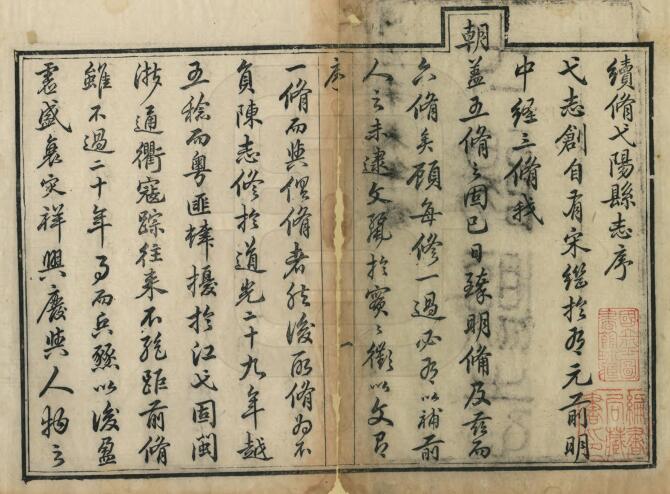 續脩弋陽縣志序
弋志創自有宋繼於有元前明
中經三脩我
朝蓋五脩之固已日臻明備及茲而
六脩矣顧每修一過必有以補前
人之未逮文於實徵以文有
序
一
一脩而與俱脩者然後所脩為不
負陳志修於道光二十九年越
五稔而粵匪蜂擾於江弋固閩
浙通衢寇踪往来不絶距前脩
雖不過二十年而兵燹以後盈
虛盛衰灾祥興廢與人物之